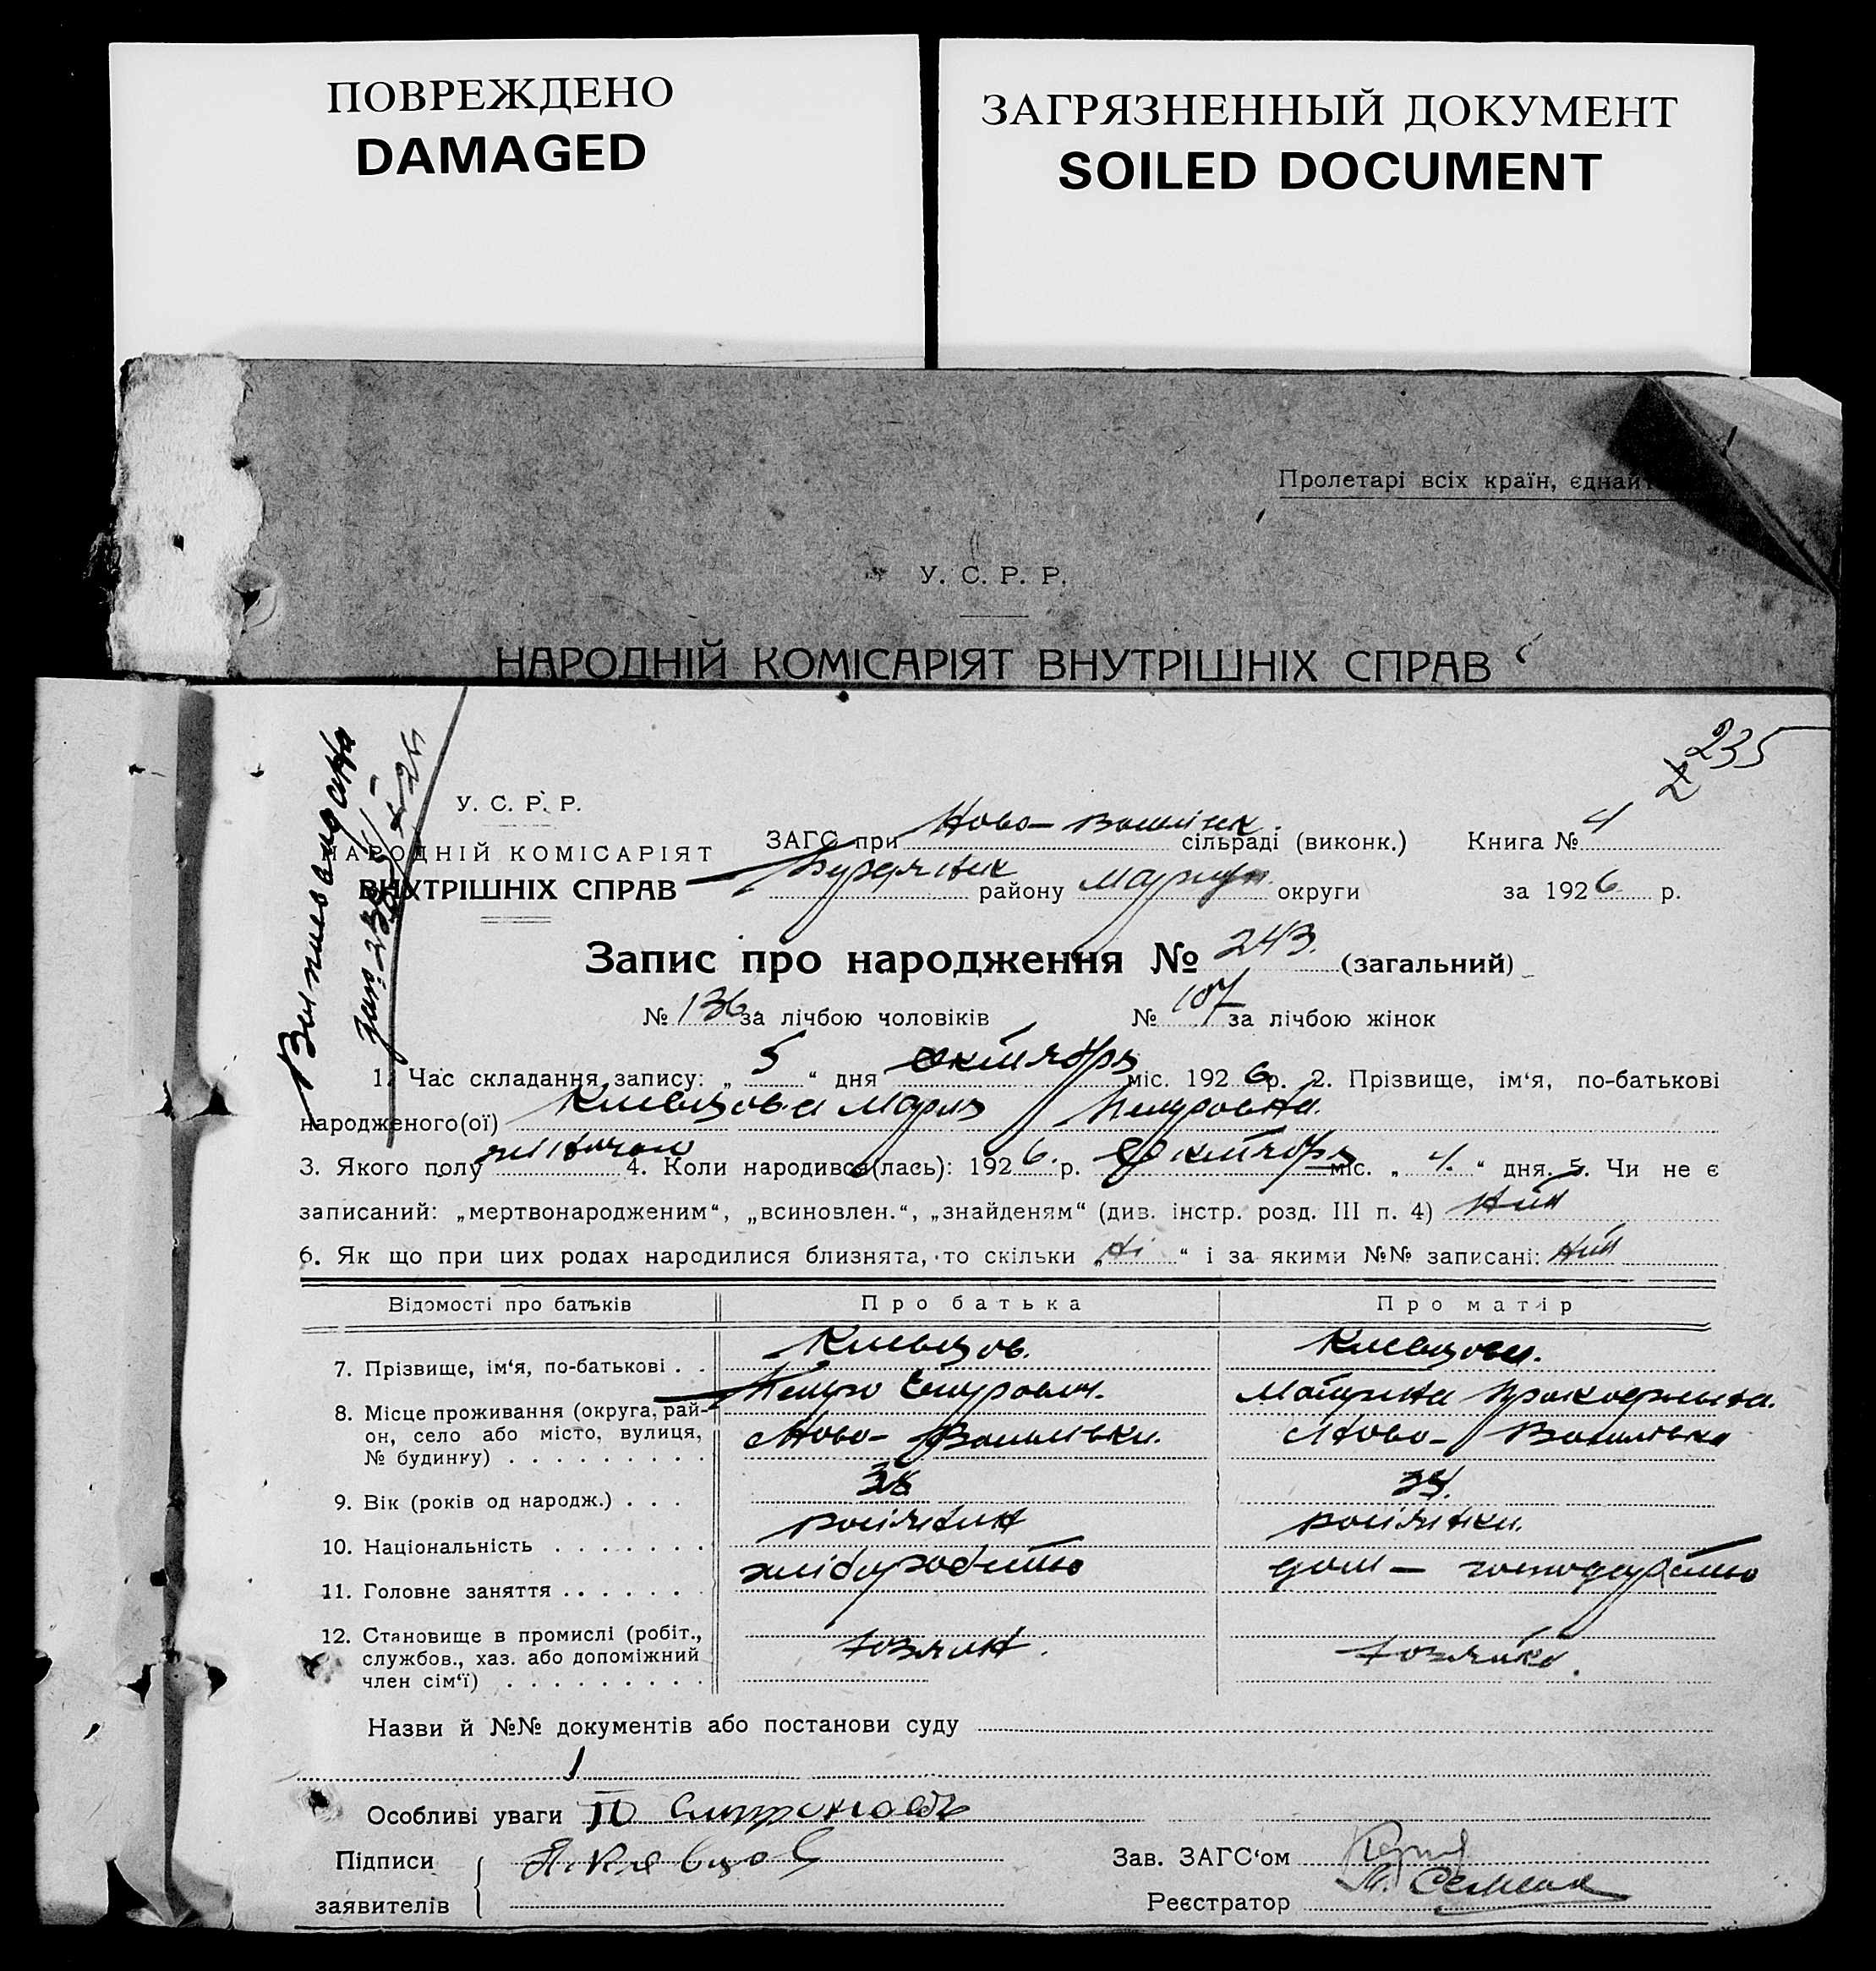 ПОВРЕЖДЕНО
DAMAGED
ЗАГРЯЗНЕННЫЙ ДОКУМЕНТ
SOILED DOCUMENT
Пролетарі всіх країн, єднай
У. С. Р. Р.
НАРОДНІЙ КОМІСАРІЯТ ВНУТРІШНІХ СПРАВ
235
У. С. Р. Р.
НАРОДНІЙ КОМІСАРІЯТ
ВНУТРІШНІХ СПРАВ
ЗАГС при Ново- сільраді (виконк.) Книга № 4
району Маріуп. округи за 1926 р.
Запис про народження № 243. (загальний)
№ 136 за лічбою чоловіків № 107 за лічбою жінок
1. Час складання запису: „ 5 “ дня октября міс. 1926 р. 2. Прізвище, ім‘я, по-батькові
народженого(ої) Клевцова Мария Петровна.
3. Якого полу жіночого 4. Коли народився(лась): 1926. р. Октября міс. „ 4. “ дня. 5. Чи не є
записаний: „мертвонародженим“, „всиновлен.“, „знайденям“ (див. інстр. розд. III п. 4) ній
6. Як що при цих родах народилися близнята, то скільки „ ні “ і за якими №№ записані: ній
Відомості про батьків Про батька Про матір
7. Прізвище, ім‘я, по-батькові . . Клевцов. Клевцова.
Петро Матрена Прокофьевна.
8. Місце проживання (округа, рай-
он, село або місто, вулиця,
№ будинку) . . . . . . . . . Ново- Ново-
9. Вік (років од народж.) . . . 38
10. Національність . . . . . . . росіянин росіянка.
11. Головне заняття . . . . . . . хліборобство дом — господарство
12. Становище в промислі (робіт.,
службов., хаз. або допоміжний
член сім‘ї) . . . . . . . . . хозяин. хозяйка.
Назви й №№ документів або постанови суду
Особливі уваги
Підписи П. Клевцов Зав. ЗАГС‘ом
заявителів Реєстратор